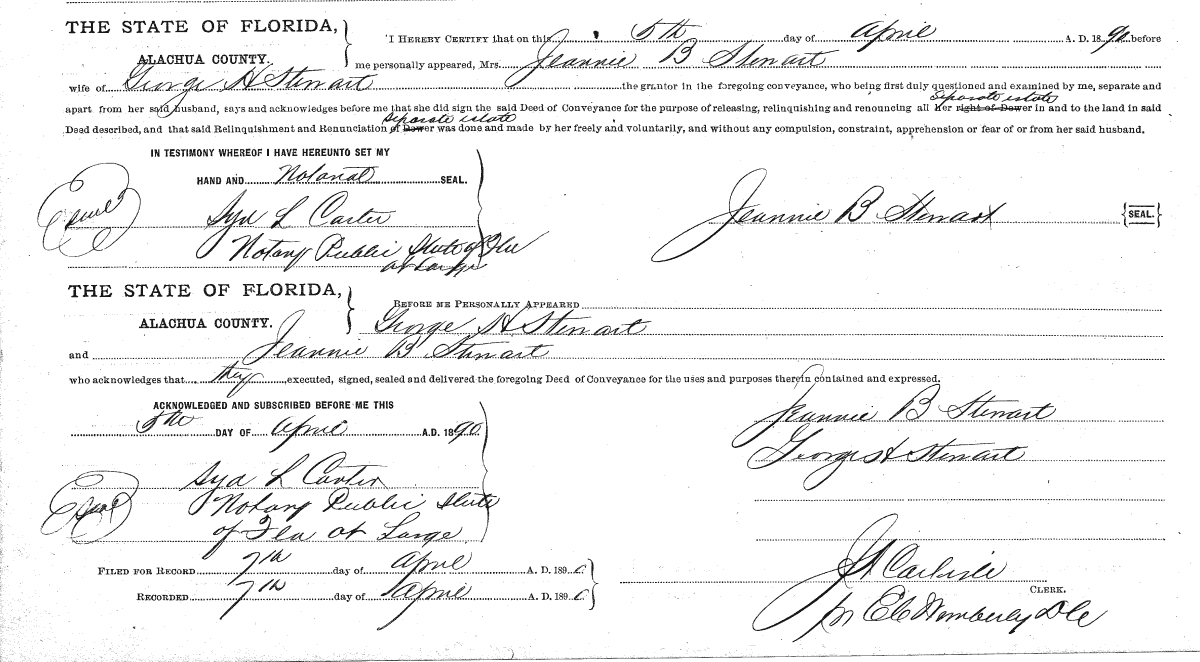 THE STATE OF FLORIDA,
ALACHUA COUNTY.
I HEREBY CERTIFY that on this 5th day of April A. D. 1890 before
me personally appeared, Mrs. Jeannie B Stewart
wife of George H Stewart the grantor in the foregoing conveyance, who being first duly questioned and examined by me, separate and
Separate estate
apart from her said husband, says and acknowledges before me that she did sign the said Deed of Conveyance for the purpose of releasing, relinquishing and renouncing all her right of Dower in and to the land in said
Separate estate
Deed described, and that said Relinquishment and Renunciation of Dower was done and made by her freely and voluntarily, and without any compulsion, constraint, apprehension or fear of or from her said husband.
IN TESTIMONY WHEREOF I HAVE HEREUNTO SET MY
HAND AND Notarial SEAL.
Seal
Syd L Carter
Jeannie B Stewart {SEAL.}
Notary Public State of Fla
at Large
THE STATE OF FLORIDA,
ALACHUA COUNTY.
BEFORE ME PERSONALLY APPEARED
George H Stewart
and Jeannie B Stewart
who acknowledges that they executed, signed, sealed and delivered the foregoing Deed of Conveyance for the uses and purposes therein contained and expressed.
ACKNOWLEDGED AND SUBSCRIBED BEFORE ME THIS
5th DAY OF April A.D. 1890
Jeannie B Stewart
George H Stewart
Seal
Syd L Carter
Notary Public State
of Fla at Large
FILED FOR RECORD 7th day of April A. D. 1890
RECORDED 7th day of April A. D. 1890
J A Carlisle
CLERK.
Wimberly DC